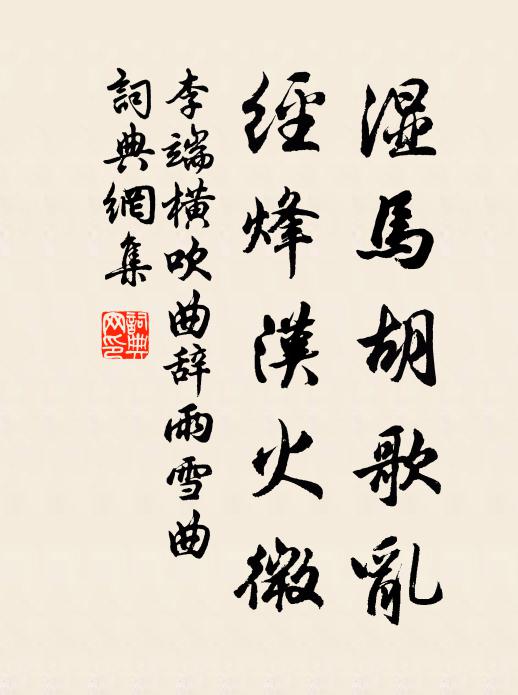 湿馬胡歌亂
經烽漢火微
李端橫吹曲辞雨雪曲
詞典網集
詞典
网印